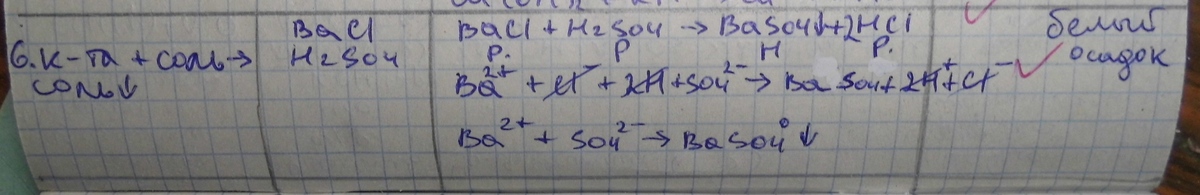 6. К-та + соль →
соль↓
BaCl
H2SO4
BaCl + H2SO4 → BaSO4↓ + 2HCl
Р. Р Н Р.
Ba²⁺ + Cl⁻ + 2H + SO4²⁻ → BaSO4 + 2H⁺ + Cl⁻
Ba²⁺ + SO4²⁻ → BaSO4⁰↓
белый
осадок